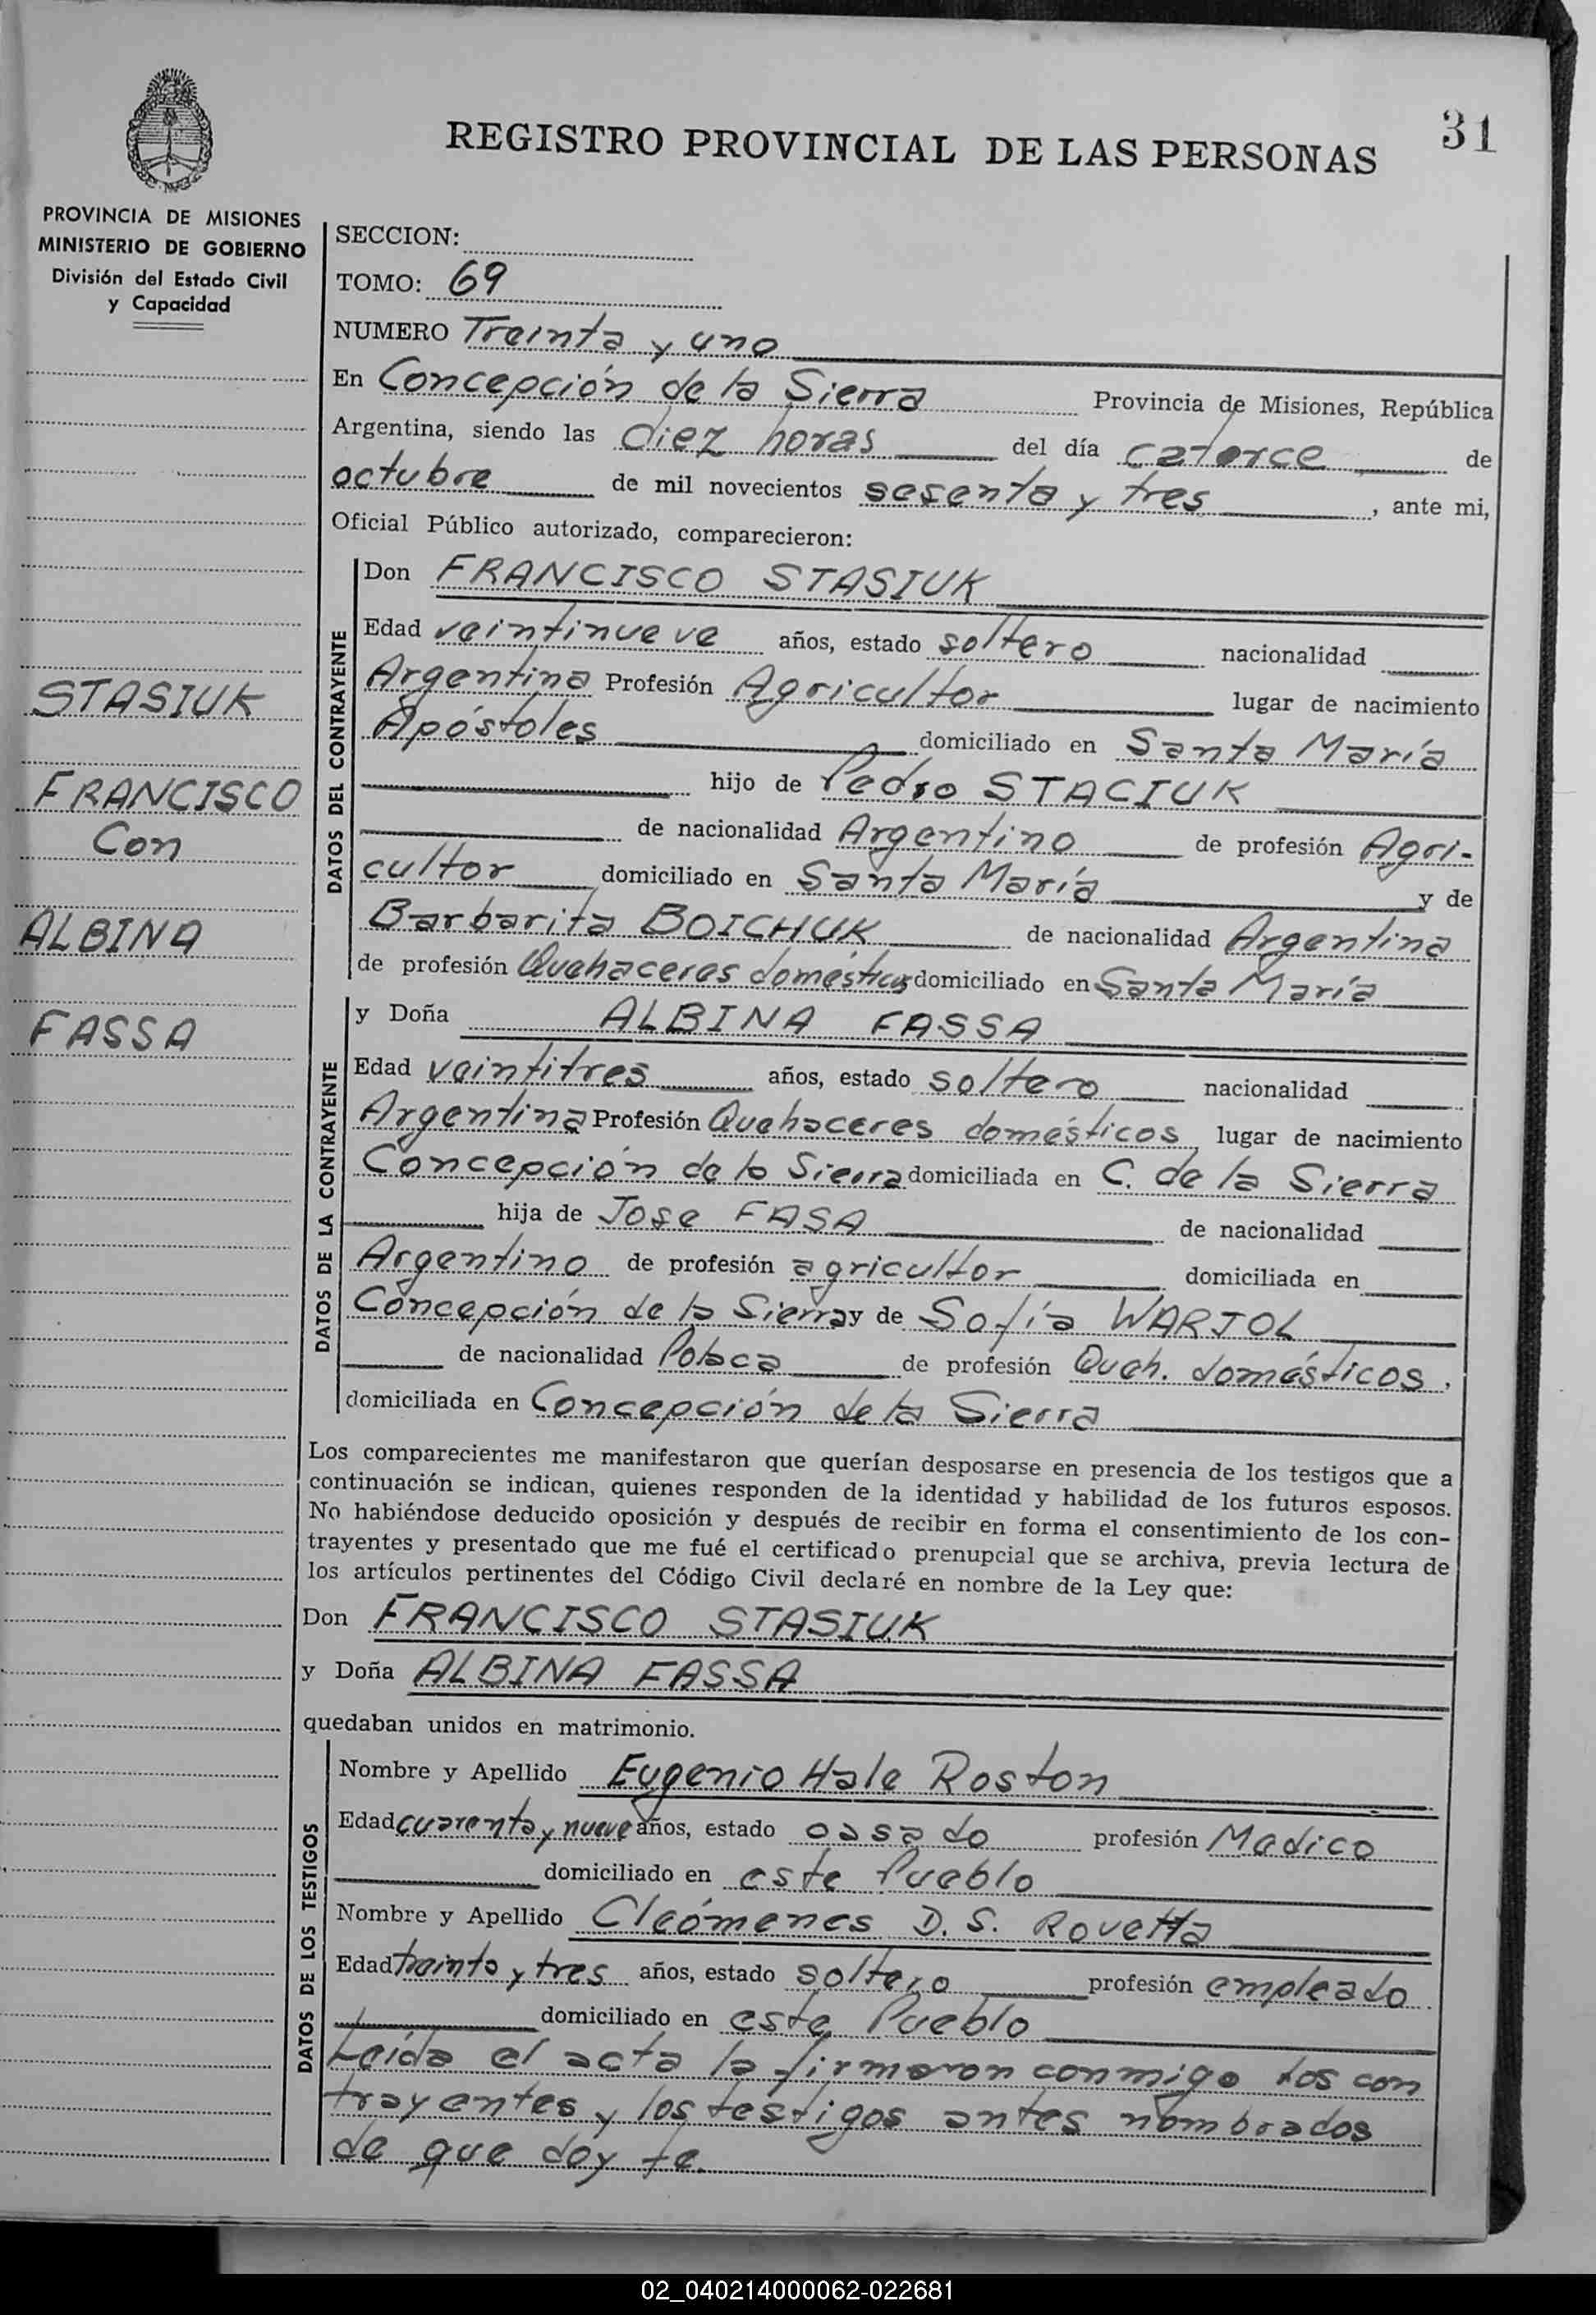 31
REGISTRO PROVINCIAL DE LAS PERSONAS
PROVINCIA DE MISIONES
MINISTERIO DE GOBIERNO
División del Estado Civil
y Capacidad
STASIUK
FRANCISCO
Con
ALBINA
FASSA
SECCION:
TOMO: 69
NUMERO Treinta y uno
En Concepción de la Sierra Provincia de Misiones, República
Argentina, siendo las diez horas del día catorce de
octubre de mil novecientos sesenta y tres, ante mi,
Oficial Público autorizado, comparecieron:
DATOS DEL CONTRAYENTE
Don FRANCISCO STASIUK
Edad veintinueve años, estado soltero nacionalidad
Argentina Profesión Agricultor lugar de nacimiento
Apóstoles domiciliado en Santa María
hijo de Pedro STACIUK
de nacionalidad Argentino de profesión Agri-
cultor domiciliado en Santa María y de
Barbarita BOICHUK de nacionalidad Argentina
de profesión Quehaceres domésticos domiciliado en Santa María
DATOS DE LA CONTRAYENTE
y Doña ALBINA FASSA
Edad veintitres años, estado soltero nacionalidad
Argentina Profesión Quehaceres domésticos lugar de nacimiento
Concepción de la Sierra domiciliada en C. de la Sierra
hija de Jose FASA de nacionalidad
Argentino de profesión agricultor domiciliada en
Concepción de la Sierra y de Sofía WARJOL
de nacionalidad Polaca de profesión Queh. domésticos,
domiciliada en Concepción de la Sierra
Los comparecientes me manifestaron que querían desposarse en presencia de los testigos que a
continuación se indican, quienes responden de la identidad y habilidad de los futuros esposos.
No habiéndose deducido oposición y después de recibir en forma el consentimiento de los con-
trayentes y presentado que me fué el certificado prenupcial que se archiva, previa lectura de
los artículos pertinentes del Código Civil declaré en nombre de la Ley que:
Don FRANCISCO STASIUK
y Doña ALBINA FASSA
quedaban unidos en matrimonio.
DATOS DE LOS TESTIGOS
Nombre y Apellido Eugenio Hale Roston
Edad cuarenta y nueve años, estado casado profesión Medico
domiciliado en este Pueblo
Nombre y Apellido Cleómenes D. S. Rovetta
Edad treinta y tres años, estado soltero profesión empleado
domiciliado en este Pueblo
Leída el acta la firmaron conmigo los con
trayentes y los testigos antes nombrados
de que doy fe.
02_040214000062-022681